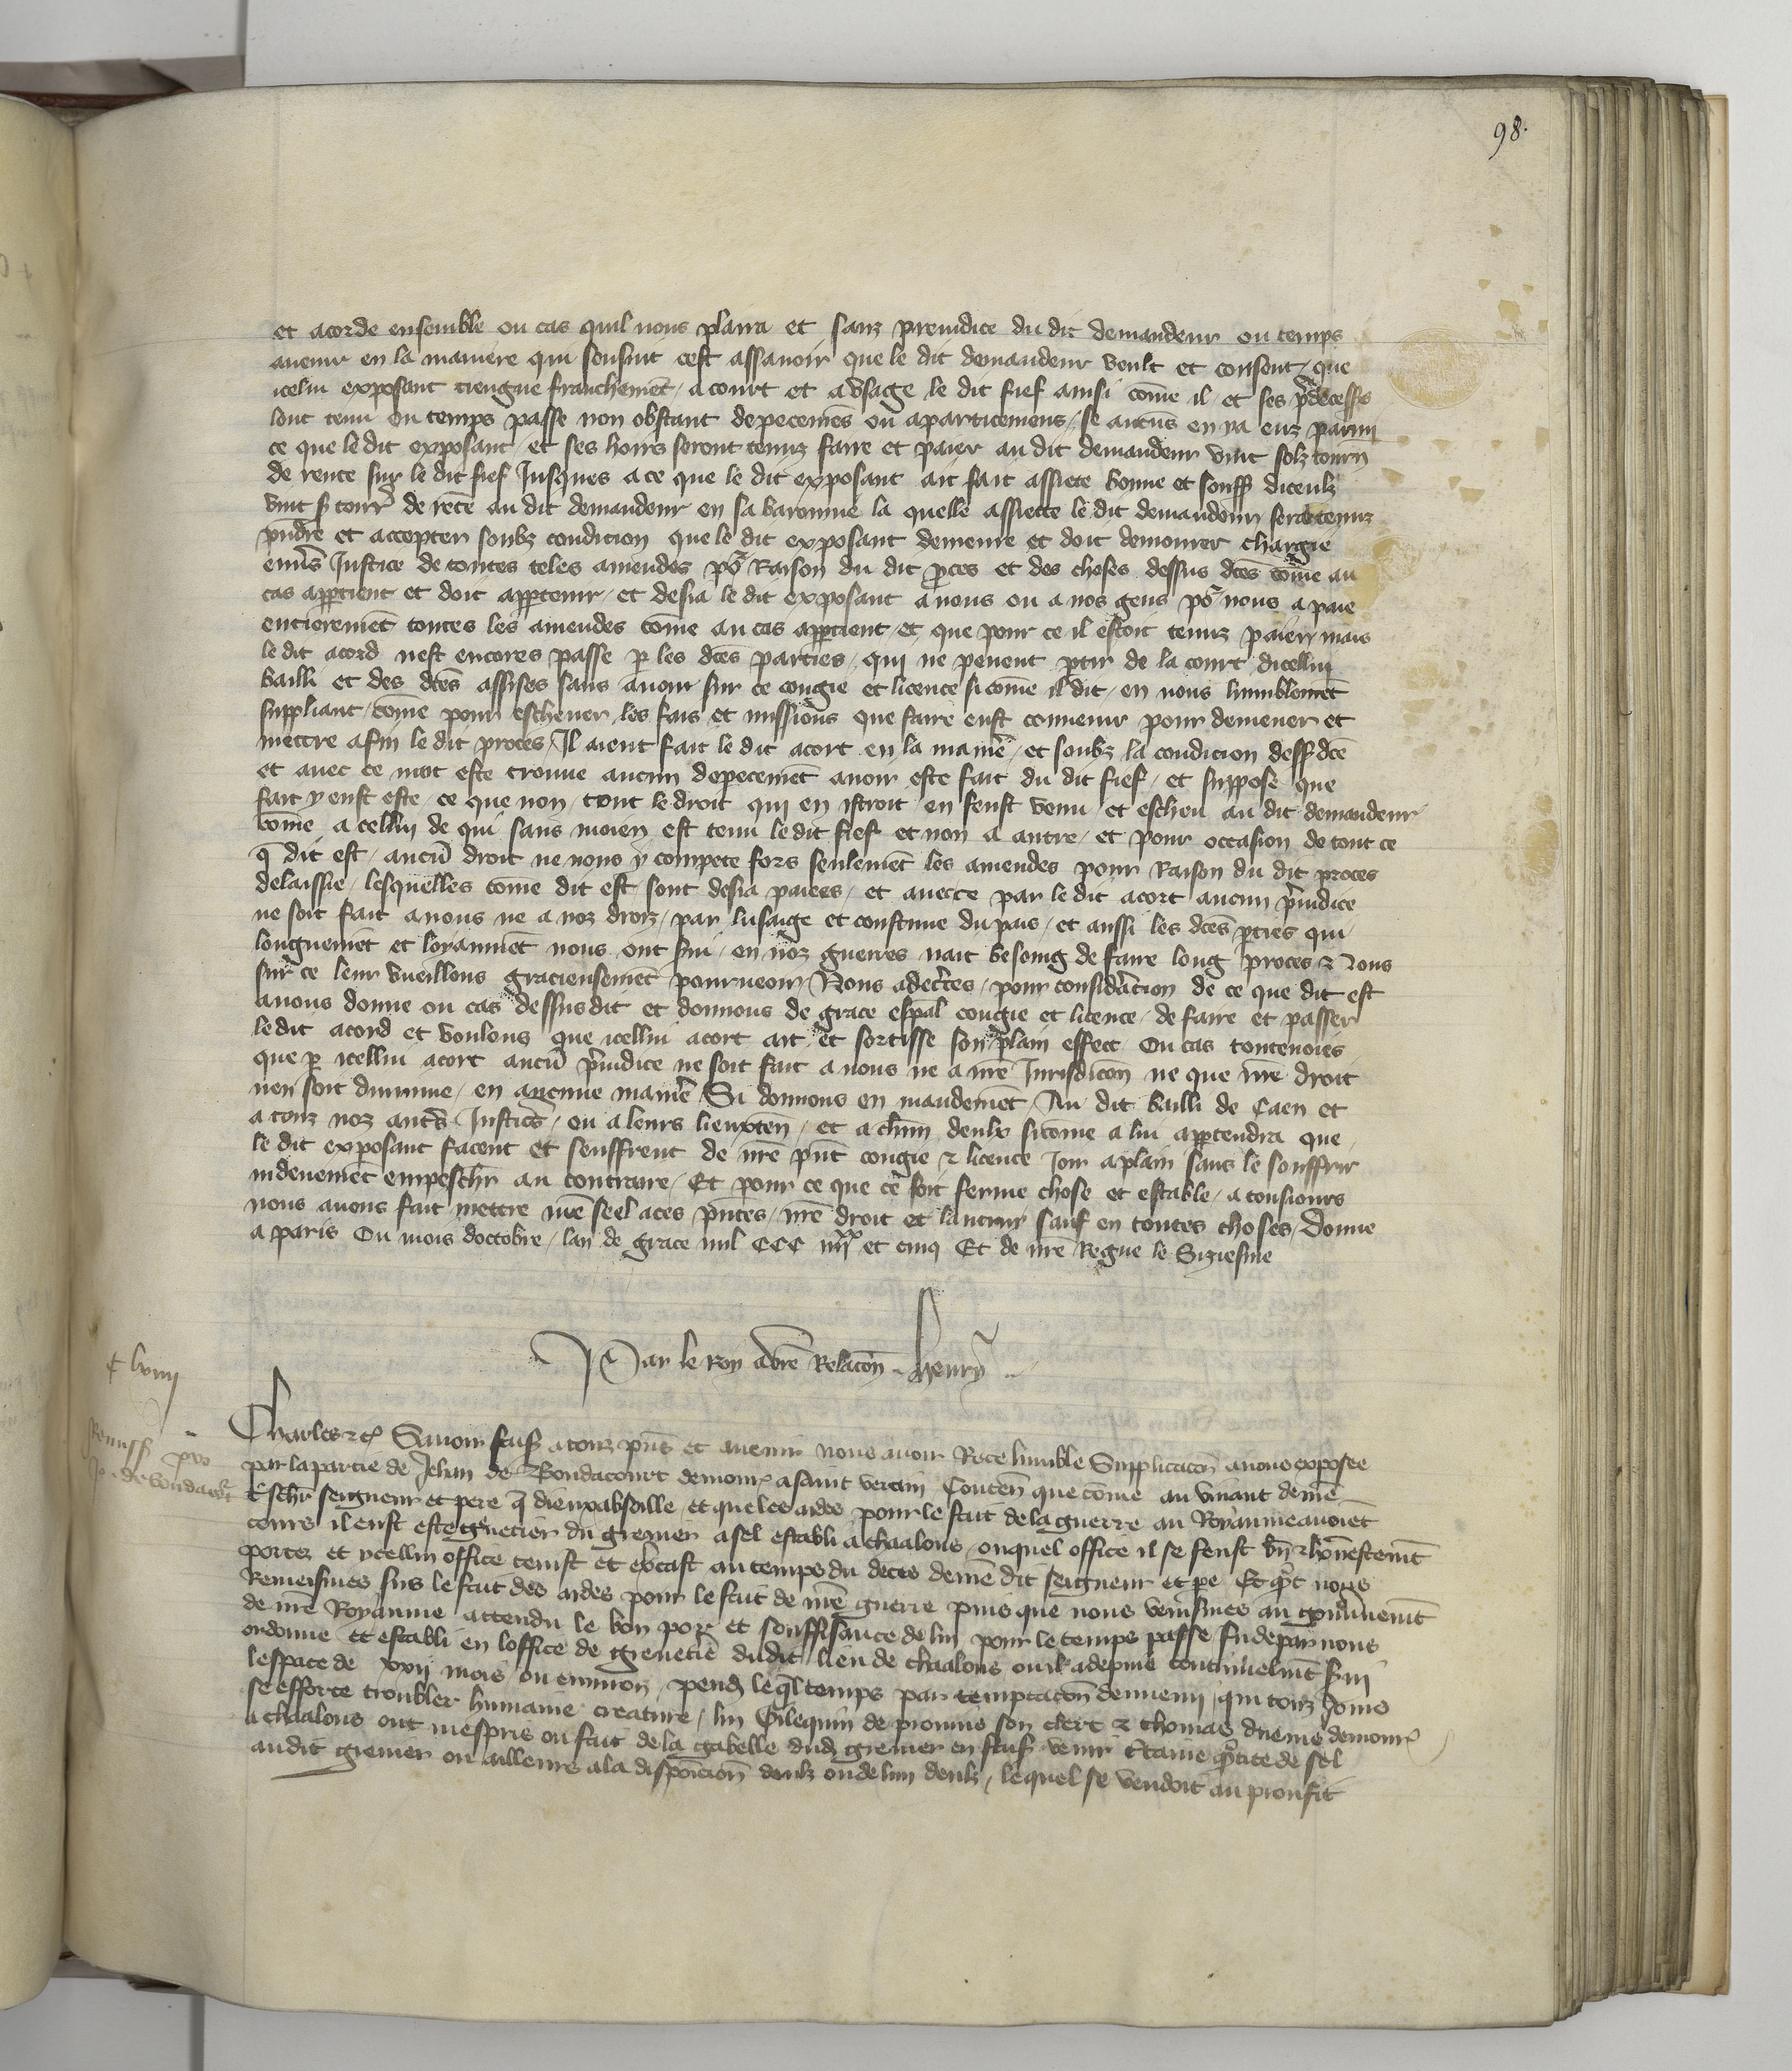 98.
et acorde ensemble ou cas quil nous plaira et sanz preiudice du dit demandeur ou temps
auenir en la maniere qui sensuit cest assauoir que le dit demandeur veult et consent / que
icelui exposant tiengne franchemēt / a court et a vsage le dit fief ainsi cōme il et ses p̄decesss
lont tenu ou temps passe non obstant depecemēs ou aparticemens / se aucūs en ya euz parmi
ce que le dit exposant / et ses hoirs seront tenuz faire et paier au dit demandeur vint solz tourn̄
de rente sur le dit fief Jusques a ce que le dit exposant ait fait assiete bonne et souff diceulz
vint s̄ tour̄ de rēte au dit demandeur en sa baronnie la quelle assiette le dit demandeur sera tenuz
p̄ndre et accepter soubz condicion que le dit exposant demeure et doit demourer chargie
enūs Justice de toutes teles amendes po͛ Raison du dit p̄ces et des choses dessus dc̄es cōme au
cas app̄tient et doit app̄tenir / et desia le dit exposant a nous ou a nos gens po͛ nous a paie
entieremēt toutes les amendes cōme au cas app̄tient / et que pour ce il estoit tenuz paier / mais
le dit acord nest encores passe p̄ les dc̄es parties / qui ne peuent p̄tir de la court dicellui
bailli et des dc̄es assises sans auoir sur ce congie et licence si cōme il dit / en nous humblemēt
suppliant / cōme pour escheuer les fais et missions que faire eust conuenir pour demener et
mettre afin le dit proces / Il aient fait le dit acort en la manie͛ / et soubz la condicion dess̄ dc̄e
et auec ce nait este trouue aucun depecemēt auoir este fait du dit fief / et suppose que
fait y eust este / ce que non / tout le droit qui en istroit en feust venu et escheu au dit demandeur
cōme a cellui de qui sans moien est tenu le dit fief et non a autre / et pour occasion de tout ce
q̄ dit est / aucū droit ne nous y compete fors seulemēt les amendes pour Raison du dit proces
delaissie / lesquelles cōme dit est sont desia paiees / et auecce par le dit acort aucun p̄iudice
ne soit fait a nous ne a noz droiz / par lusaige et coustume du pais / et aussi les dc̄es p̄ties qui
longuemēt et loyaumēt nous ont s̄ui / en noz guerres nait besoing de faire long proces & Nous
sur ce leur vueillons gracieusemēt pourueoir / Nous adec̄tes / pour considerac̄ion de ce que dit est
auons donne ou cas dessusdit et donnons de grace esp̄al congie et licence / de faire et passer
le dit acord et voulons que icellui acort ait et sortisse son plain effect Ou cas toutenoies
que p̄ icellui acort aucū p̄iudice ne soit fait a nous ne a nr̄e Jurisdicōn ne que nr̄e droit
nen soit diminue / en aucune manie͛ / Si donnons en mandemēt / Au dit bailli de Caen et
a touz noz aut̄s Justic̄s / ou a leurs lieuxten̄ / et a chūn deulx sicōme a lui app̄tendra que
le dit exposant facent et seuffrent de nr̄e p̄nt congie & licence Joir a plain sans le souffrir
indeuemēt empeschr̄ au contraire / Et pour ce que ce soit ferme chose et estable / a tousiours
nous auons fait mettre nr̄e seel a ces p̄ntes / nr̄e droit et lautruy sauf en toutes choses / Donne
a paris Ou mois doctobre / lan de grace mil CCC iiijxx et cinq Et de nr̄e Regne le Siziesme
Par le Roy a vr̄e Relacōn . henry ..
C lviij
Remiss̄ pro
Jo. de boudacourt
Charles &c̄ Sauoir fais̄ a touz p̄ns et auenir nous auoir Rece humble Supplicacōn a nous exposee
par la partie de Jehan de Boudacourt demour̄ a saint verain Conten̄ que cōme au viuant de nr̄e
tr̄schr̄ seigneur et pere q̄ dieux absoille / et que les aides pour le fait de la guerre au Royaume auoiēt
cours il eust este grenetier du grenier a sel establi a chaalons / ouquel office il se feust bn̄ & hōnestemēt
portez et ycellui office tenist et ex̄cast au temps du deces de nr̄e dit seigneur et pe͛ Et q̄nt nous
Remeismes sus le fait des aides pour le fait de nr̄e guerre puis que nous venismes au gouu̇nemēt
de nr̄e Royaume attendu le bon port et souffisance de lui pour le temps passe / fu de par nous
ordonne et establi en loffice de grenetie͛ dudit lieu de chaalons ou il a depuis continuelmēt s̄ui
lespace de xvij mois ou enuiron / pend̄ leq̄l temps par temptacōn dennemi / qui touz Jours
se efforce troubler humaine creature / lui Gilequin de prouuis son clerc & thomas dueme demour̄
a chaalons ont mespris ou fait de la gabelle dud̄ grenier en fais̄ venir c̄taine q̄ntite de sel
audit grenier ou ailleurs a la disposicion deulz ou de lun deulz / lequel se vendoit au proufit